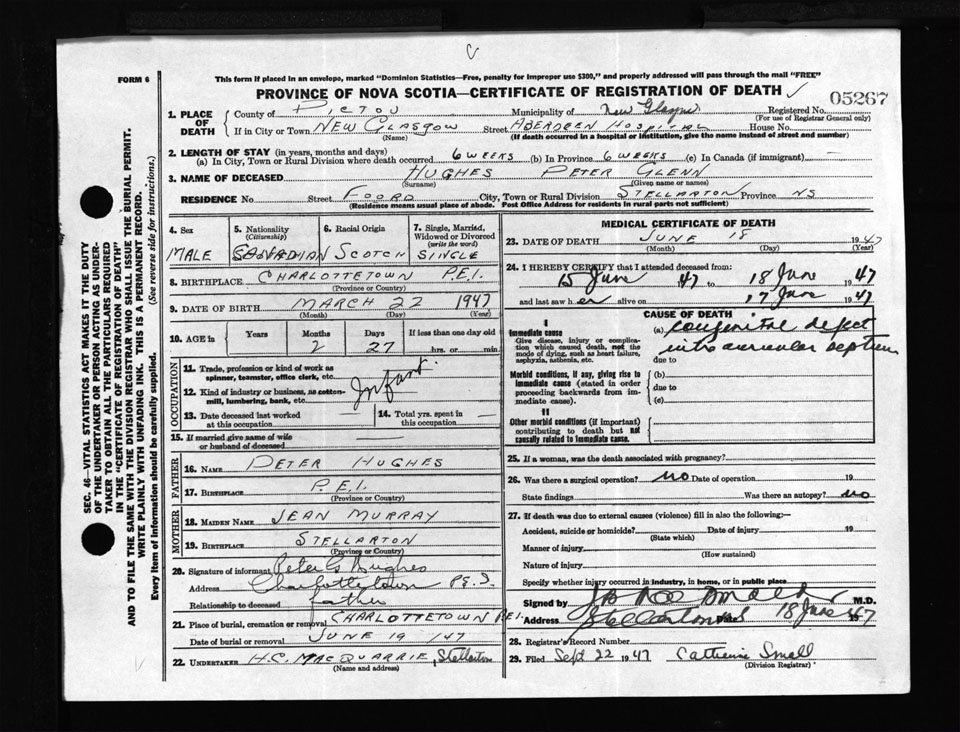 FORM 6
This form if placed in an envelope, marked "Dominion Statistics—Free, penalty for improper use $300," and properly addressed will pass through the mail "FREE"
PROVINCE OF NOVA SCOTIA—CERTIFICATE OF REGISTRATION OF DEATH
05267
1. PLACE OF DEATH
County of PICTOU Municipality of New Glasgow Registered No.
(For use of Registrar General only)
If in City or Town NEW GLASGOW Street ABERDEEN HOSPITAL House No.
(Name) (If death occurred in a hospital or institution, give the name instead of street and number)
2. LENGTH OF STAY (in years, months and days)
(a) In City, Town or Rural Division where death occurred 6 WEEKS (b) In Province 6 WEEKS (c) In Canada (if immigrant) —
3. NAME OF DECEASED HUGHES PETER GLENN
(Surname) (Given name or names)
RESIDENCE No. Street FOORD City, Town or Rural Division STELLARTON Province NS
(Residence means usual place of abode. Post Office Address for residents in rural parts not sufficient)
SEC. 46—VITAL STATISTICS ACT MAKES IT THE DUTY
OF THE UNDERTAKER OR PERSON ACTING AS UNDER-
TAKER TO OBTAIN ALL THE PARTICULARS REQUIRED
IN THE "CERTIFICATE OF REGISTRATION OF DEATH"
AND TO FILE THE SAME WITH THE DIVISION REGISTRAR WHO SHALL ISSUE THE BURIAL PERMIT.
WRITE PLAINLY WITH UNFADING INK. THIS IS A PERMANENT RECORD.
Every item of information should be carefully supplied. (See reverse side for instructions.)
4. Sex
MALE
5. Nationality
(Citizenship)
CANADIAN
6. Racial Origin
SCOTCH
7. Single, Married,
Widowed or Divorced
(write the word)
SINGLE
8. BIRTHPLACE CHARLOTTETOWN P.E.I.
(Province or Country)
9. DATE OF BIRTH MARCH 22 1947
(Month) (Day) (Year)
10. AGE in Years Months Days If less than one day old
2 27 hrs. or min.
OCCUPATION
11. Trade, profession or kind of work as
spinner, teamster, office clerk, etc.
Infant
12. Kind of industry or business, as cotton-
mill, lumbering, bank, etc.
13. Date deceased last worked
at this occupation —
14. Total yrs. spent in
this occupation —
15. If married give name of wife
or husband of deceased —
FATHER
16. NAME PETER HUGHES
17. BIRTHPLACE P.E.I.
(Province or Country)
MOTHER
18. MAIDEN NAME JEAN MURRAY
19. BIRTHPLACE STELLARTON
(Province or Country)
20. Signature of informant Peter G Hughes
Address Charlottetown P.E.I.
Relationship to deceased father
21. Place of burial, cremation or removal CHARLOTTETOWN P.E.I.
Date of burial or removal JUNE 19 /47
22. UNDERTAKER H.C. MACQUARRIE, Stellarton
(Name and address)
MEDICAL CERTIFICATE OF DEATH
23. DATE OF DEATH JUNE 18 1947
(Month) (Day)
24. I HEREBY CERTIFY that I attended deceased from:
15 June 1947 to 18 June 1947
and last saw h er alive on 17 June 1947
CAUSE OF DEATH
I
Immediate cause
Give disease, injury or complica-
tion which caused death, not the
mode of dying, such as heart failure,
asphyxia, asthenia, etc.
(a) congenital defect
intra auricular septum
due to
Morbid conditions, if any, giving rise to
immediate cause (stated in order
proceeding backwards from im-
mediate cause).
(b)
due to
(c)
II
Other morbid conditions (if important)
contributing to death but not
causally related to immediate cause.
25. If a woman, was the death associated with pregnancy?
26. Was there a surgical operation? no Date of operation 19
State findings Was there an autopsy? no
27. If death was due to external causes (violence) fill in also the following:—
Accident, suicide or homicide? Date of injury 19
(State which)
Manner of injury
(How sustained)
Nature of injury
Specify whether injury occurred in industry, in home, or in public place
Signed by M.D.
Address Stellarton NS Date 18 June 1947
28. Registrar's Record Number
29. Filed Sept 22 1947 Catherine Small
(Division Registrar)